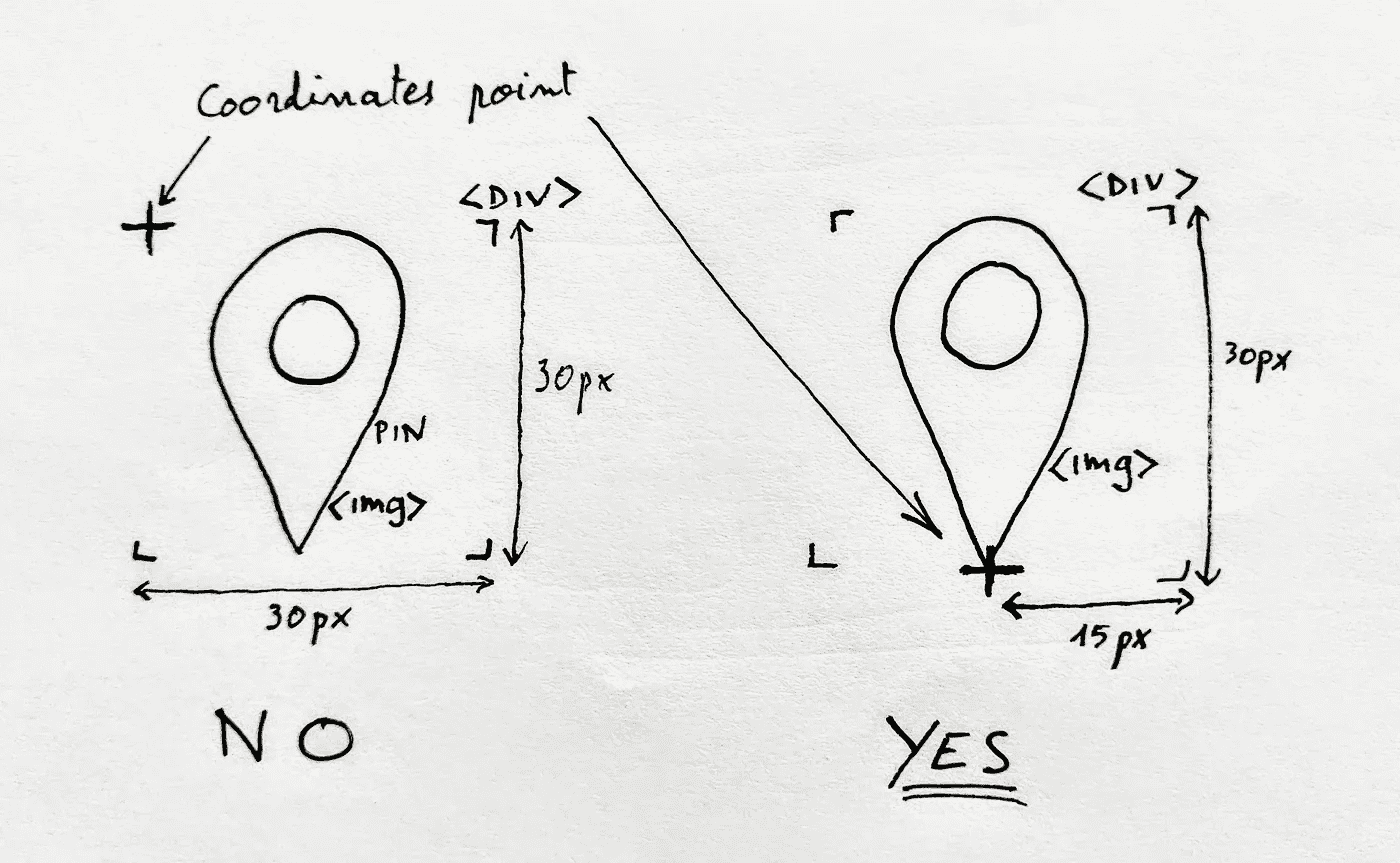 Coordinates point
<DIV>
30px
PIN
<img>
30px
NO
<DIV>
30px
<img>
15px
YES